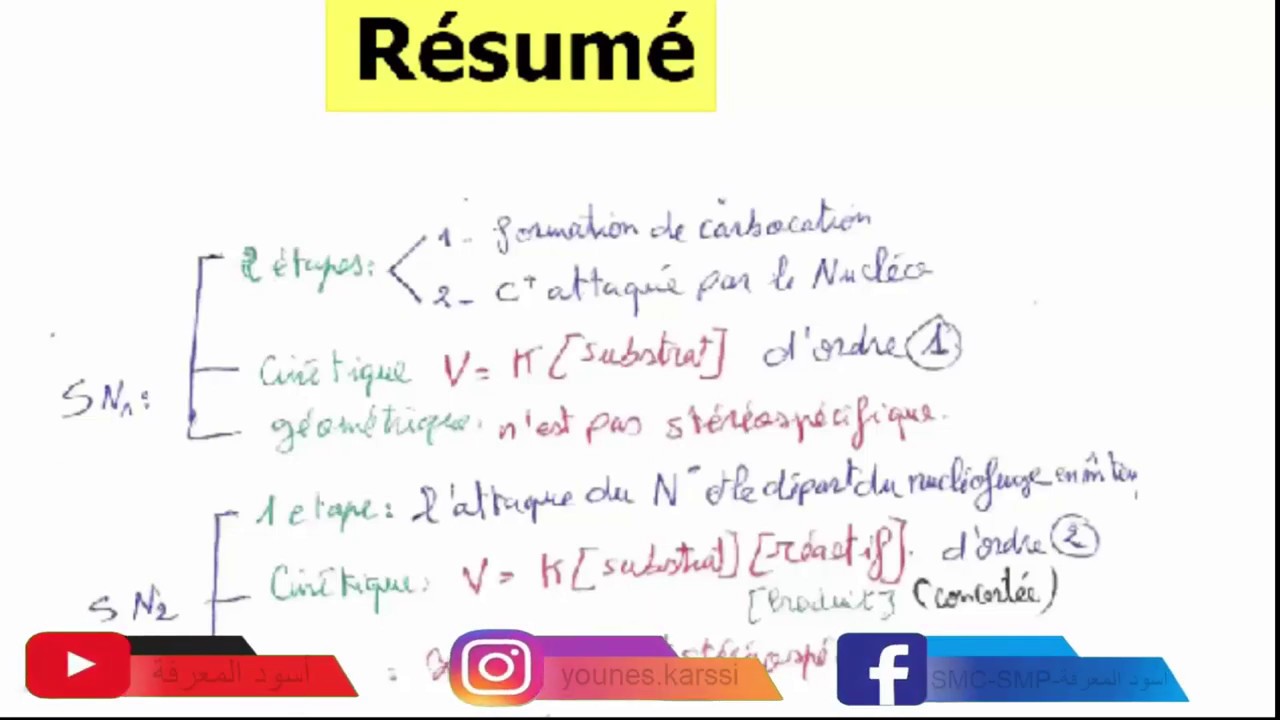 Résumé
1- formation de carbocation
2 étapes:
2- C+ attaqué par le Nucléo
Cinétique V= K [substrat] d'ordre 1
SN1:
géométrique: n'est pas stéréospécifique.
1 etape: l'attaque du N- et le départ du nucléofuge en m̂
Cinétique: V= K [substrat] [réactif]. d'ordre 2
SN2
[Produit] (concertée)
أسود المعرفة
younes.karssi
SMC-SMP-أسود المعرفة